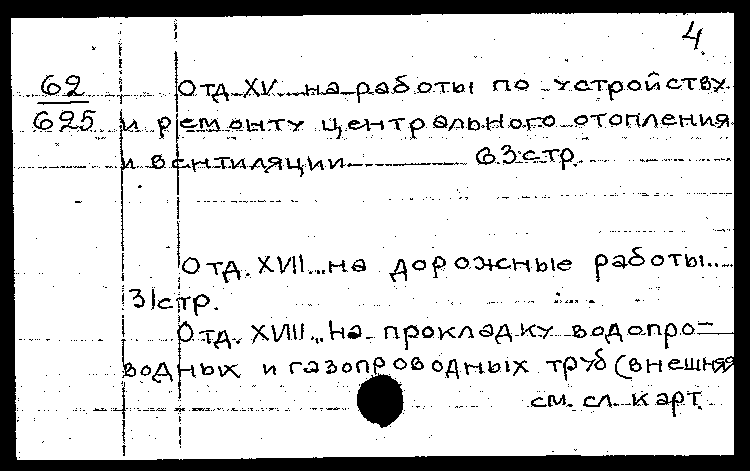 4.
62
625
Отд. XV. на работы по устройству
и ремонту центрального отопления
и вентиляции 63 стр.
Отд. XVII. на дорожные работы.
31 стр.
Отд. XVIII. на прокладку водопро-
водных и газопроводных труб (внешняя
см. сл. карт.